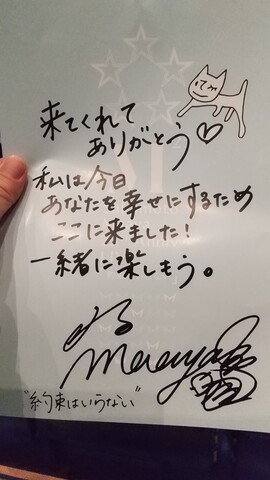 来てくれて
ありがとう
私は今日
あなたを幸せにするため
ここに来ました!
一緒に楽しもう。
"約束はいらない"